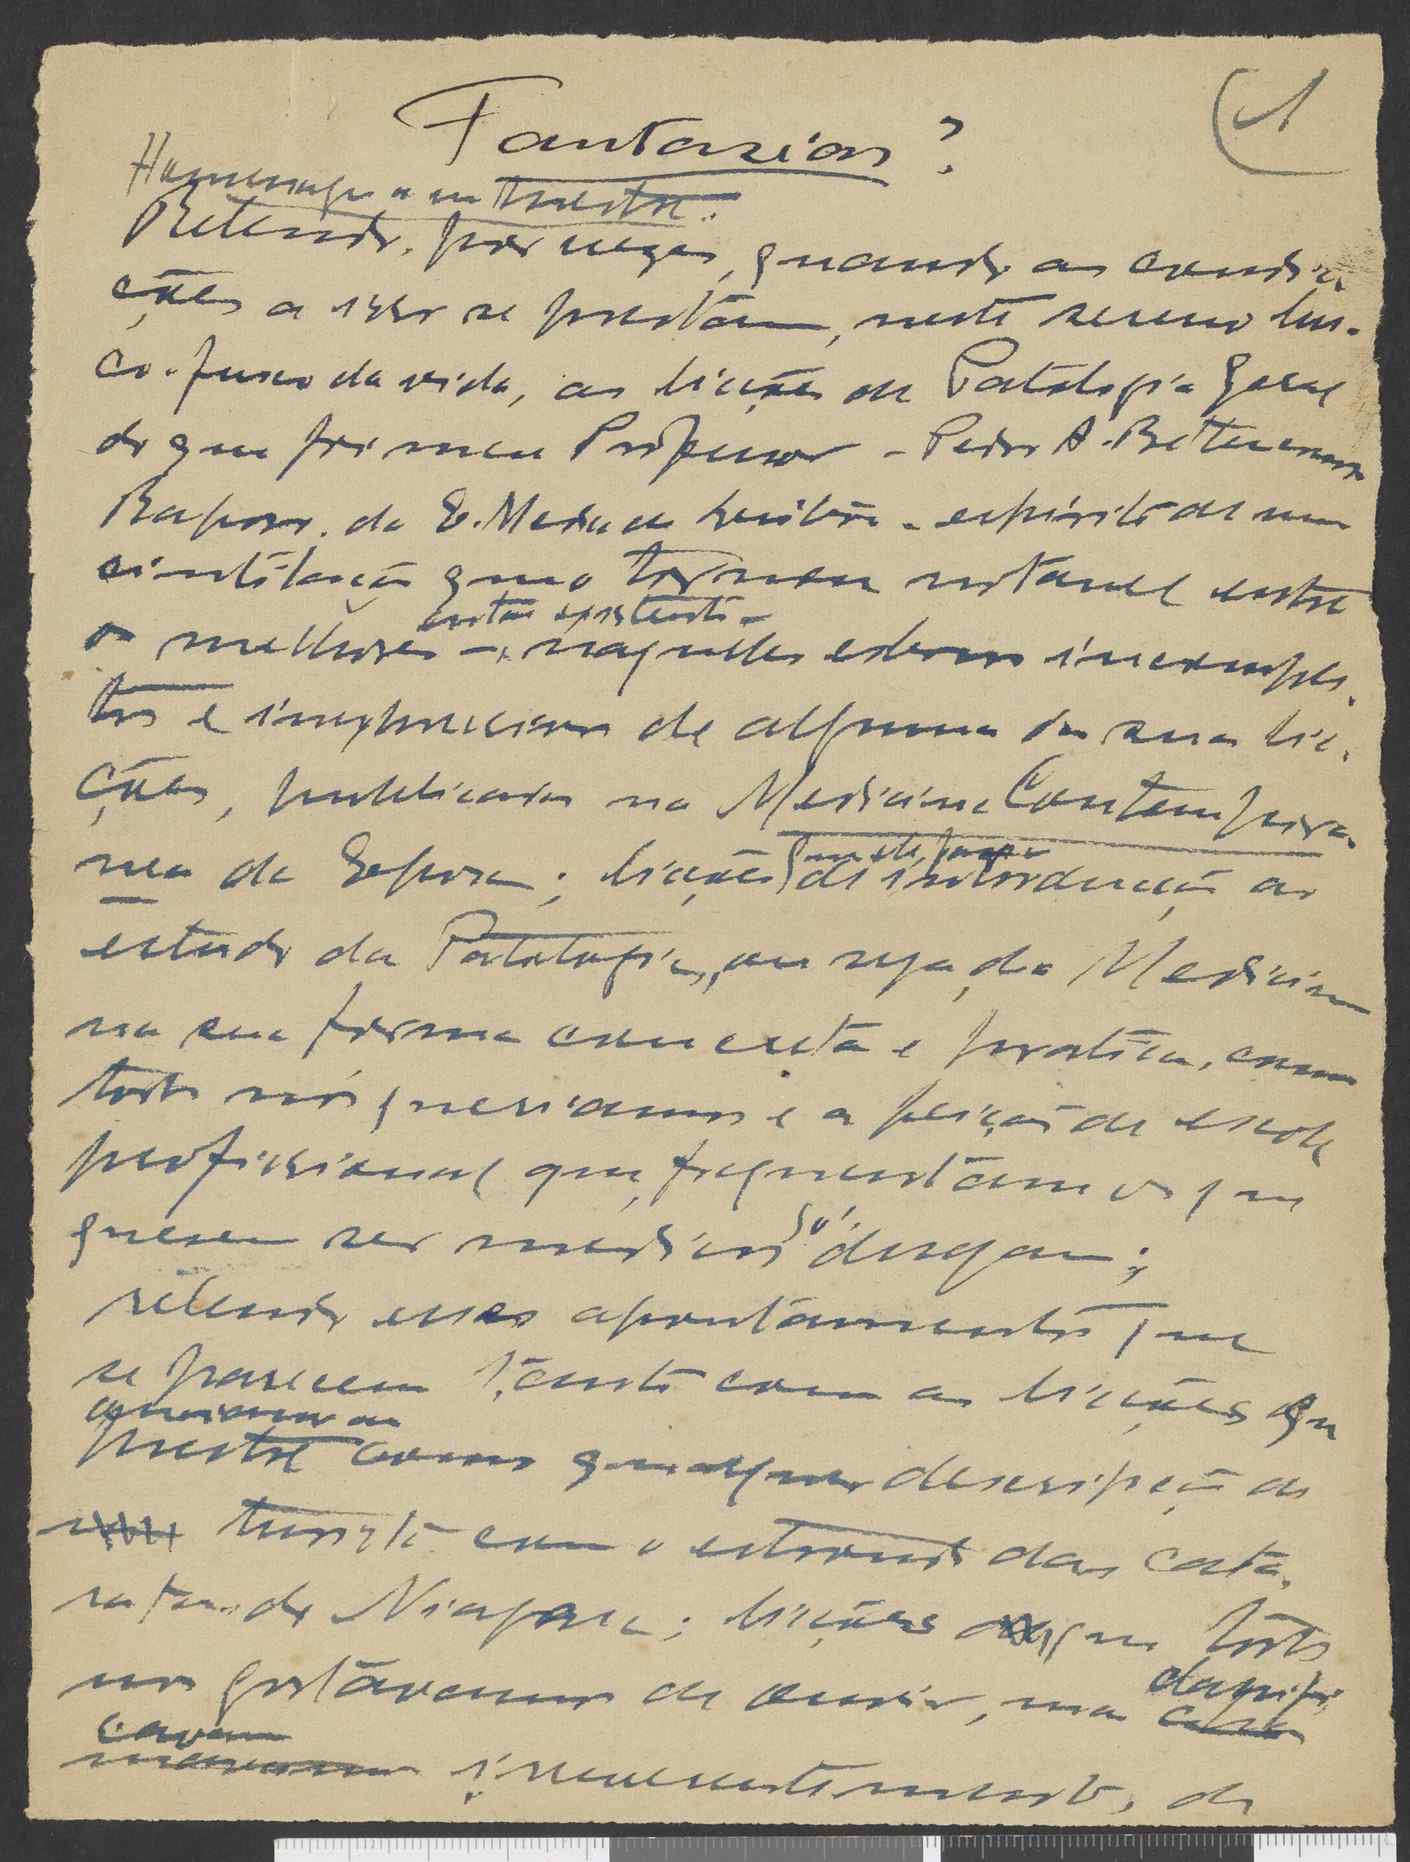 1
Fantasias?
Homenagem a um mestre.
Relendo, por vezes, quando as condi-
ções a isso se prestam, neste sereno lus-
co-fusco da vida, as lições de Patologia geral
do que foi meu Professor - Pedro A. Bettencourt
Raposo, da E. Med. de Lisboa - espirito de uma
cintilação que o tornou notavel entre
os melhores - naquelles esboços incomple-
tos e imprecisos de algumas das suas li-
ções, publicadas na Medicina Contempora-
nea da Epoca; lições de introdução ao
estudo da Patologia, ou seja, da Medicina
na sua forma concreta e pratica, como
todos nós queriamos e a feição de escola
profissional que frequentam os que
querem ser medicos só desejam;
relendo esses apontamentos que
se parecem tanto com as lições que
mestre como qualquer descripção de
turista com o estrondo das cata-
ratas do Niagara; lições que todos
nós gostavamos de ouvir, mas classifi-
cavam irreverentemente, de